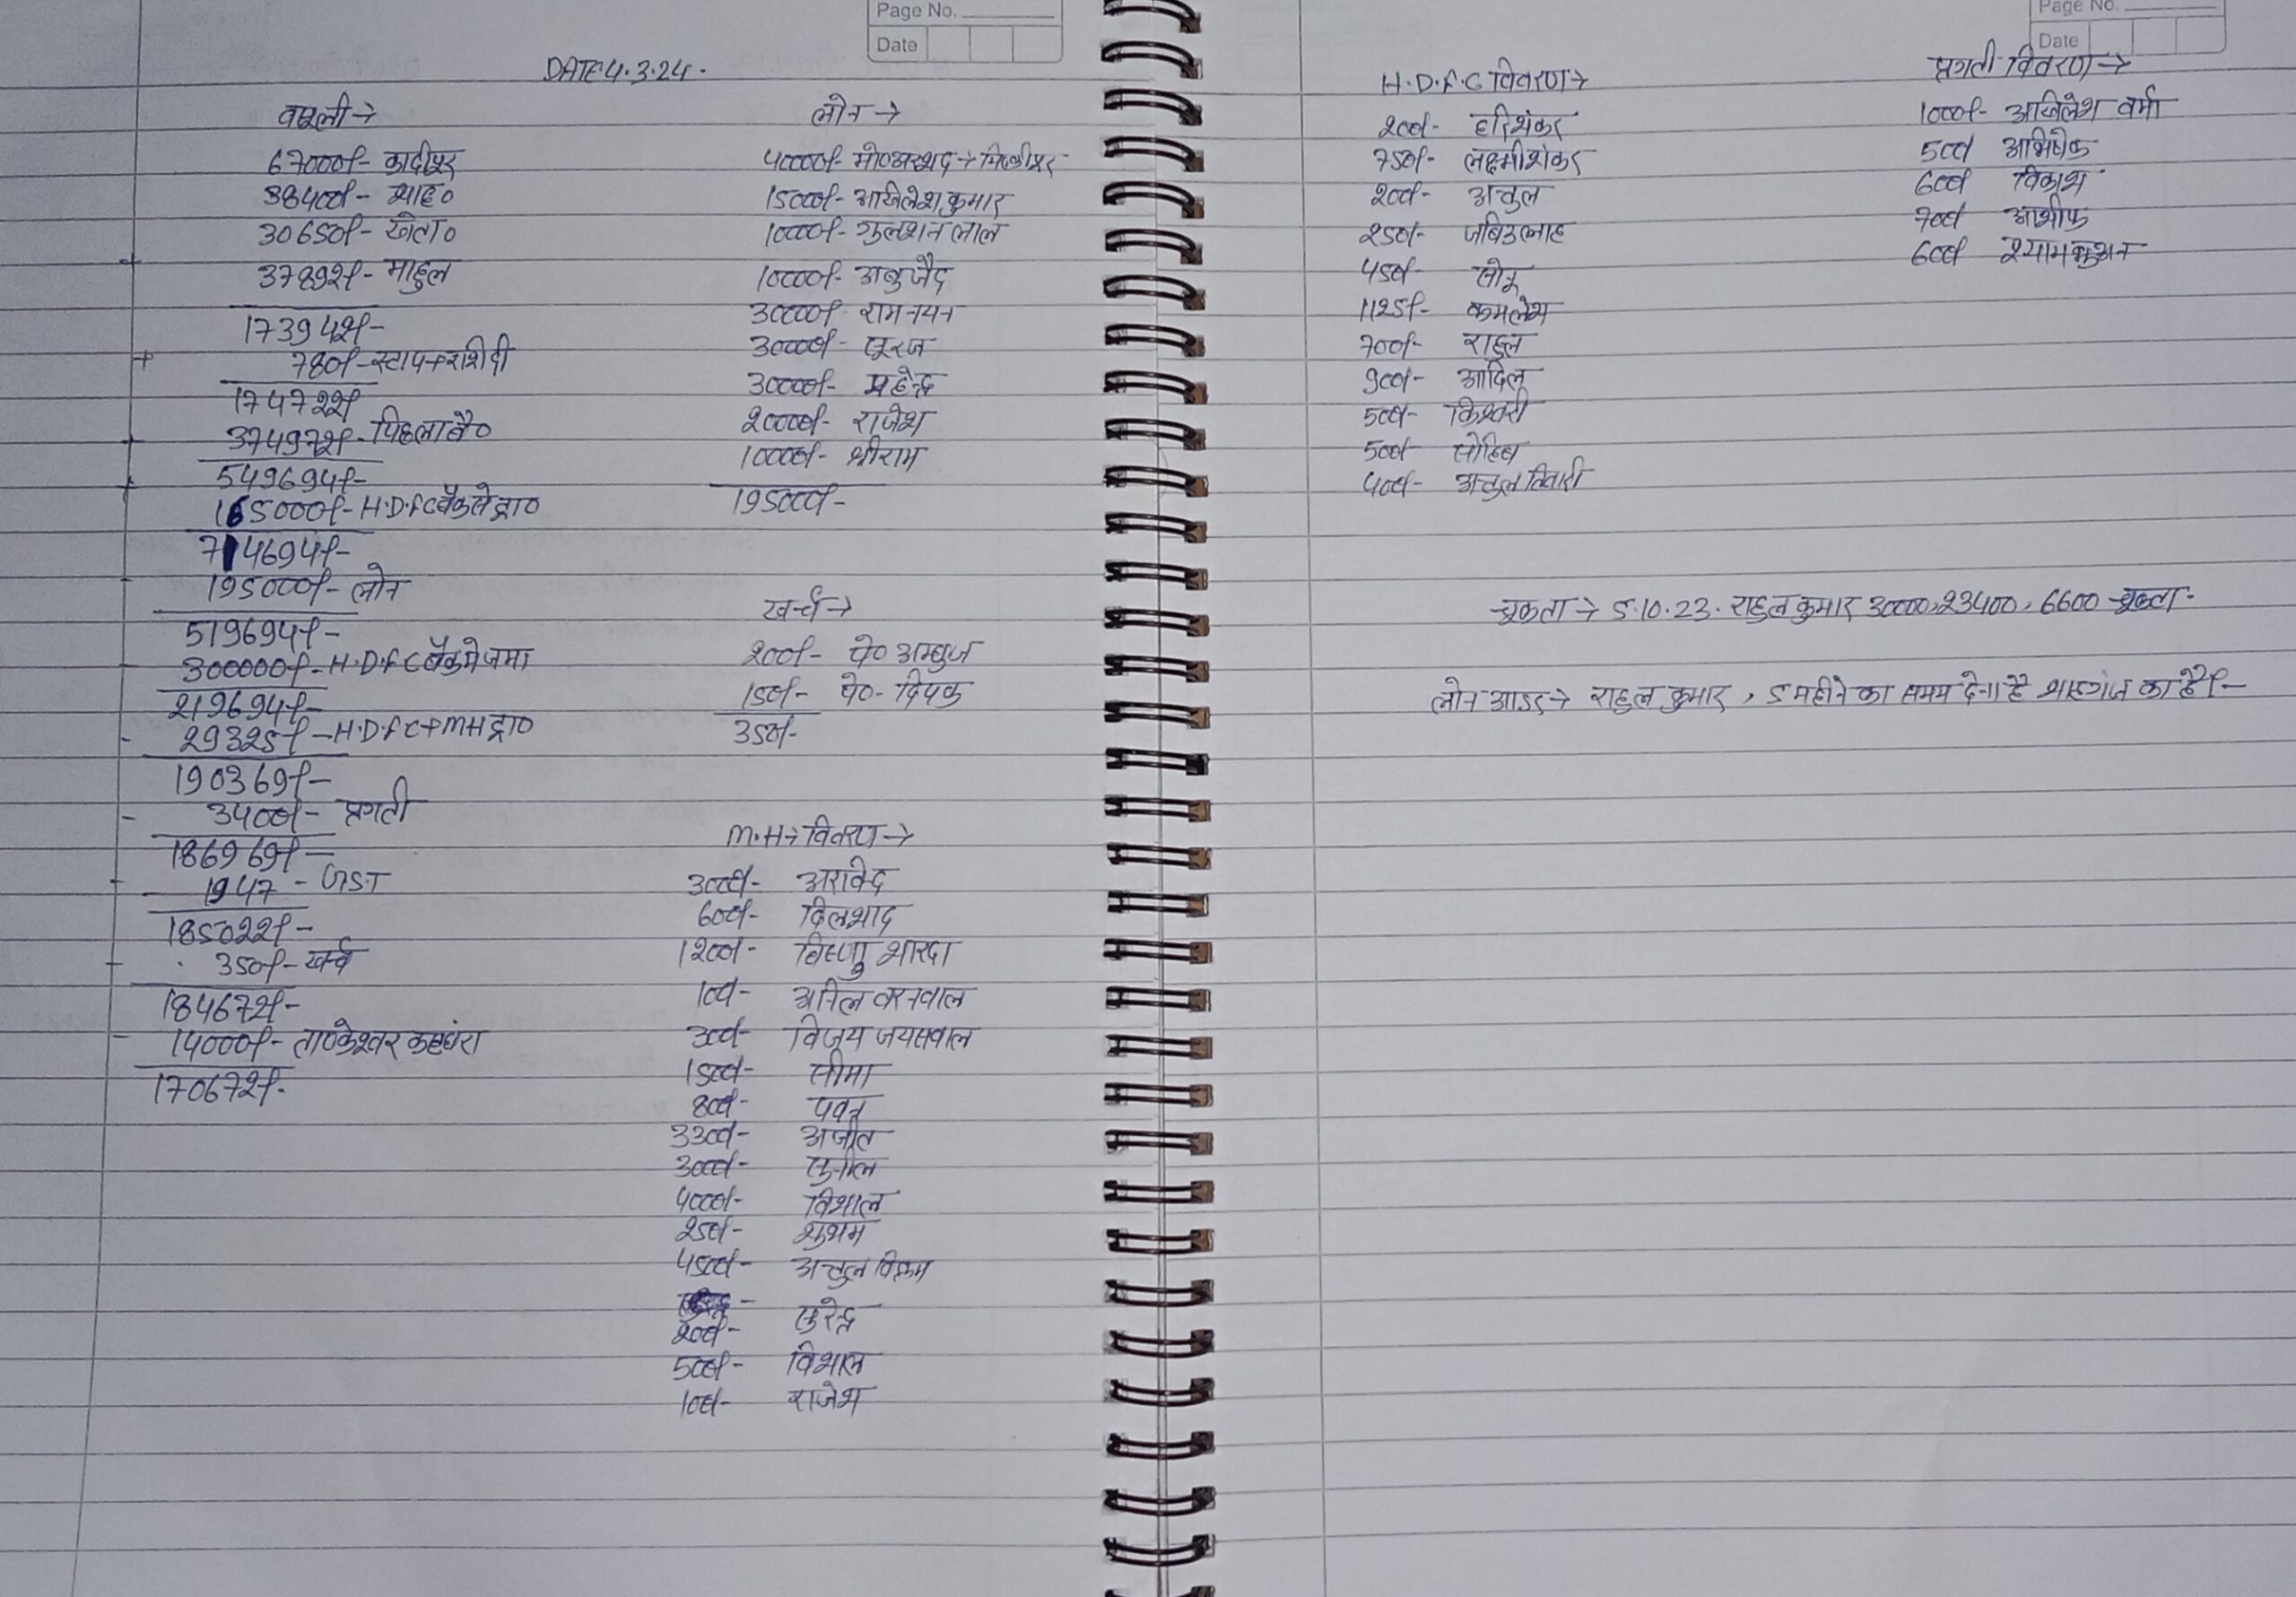 Page No.
Date
DATE 4.3.24.
वसूली →
67000/- कादीपुर
38400/- शाह०
30650/- खेता०
+ 37892/- माहुल
173942/-
+ 780/- स्टाप+रशिदी
174722/-
+ 374972/- पिछला बै०
549694/-
+ 165000/- H.D.F.C बैंक से द्वा०
714694/-
- 195000/- लोन
519694/-
- 300000/- H.D.F.C बैंक मे जमा
219694/-
- 29325/- H.D.F.C+MH द्वा०
190369/-
- 3400/- प्रगती
186969/-
- 1947 - GST
185022/-
- 350/- खर्च
184672/-
- 14000/- ता०केश्वर
170672/-
लोन →
40000/- मो०अरशद →
15000/- अखिलेश कुमार
10000/- गुलशन लाल
10000/- अबुजैद
30000/- राम नयन
30000/- सूरज
30000/- महेन्द्र
20000/- राजेश
10000/- श्रीराम
195000/-
खर्च →
200/- पे० अम्बुज
150/- पे०- दिपक
350/-
M.H → विवरण →
3000/- अरविन्द
600/- दिलशाद
1200/- विष्णु शारदा
100/- अनिल बरनवाल
300/- विजय जयसवाल
1500/- सीमा
800/- पवन
3300/- अजीत
3000/- सुनील
4000/- विशाल
250/- शुभम
4500/- अतुल विक्रम
200/- सुरेन्द्र
500/- विशाल
100/- राजेश
Page No.
Date
H.D.F.C विवरण →
200/- हरिशंकर
750/- लक्ष्मीशंकर
200/- अतुल
250/- जबिउल्लाह
450/- सोनू
1125/- कमलेश
700/- राहुल
900/- आदिल
500/- किश्वरी
500/- सोहिब
400/- अतुल तिवारी
प्रगती विवरण →
1000/- अखिलेश वर्मा
500/ अभिषेक
600/ विकाश
700/ आशीफ
600/ श्याम
चुकता → 5.10.23. राहुल कुमार 30000, 23400, 6600 चुकता -
लोन आडर → राहुल कुमार, 5 महीने का समय देना है शाहगंज का है/-